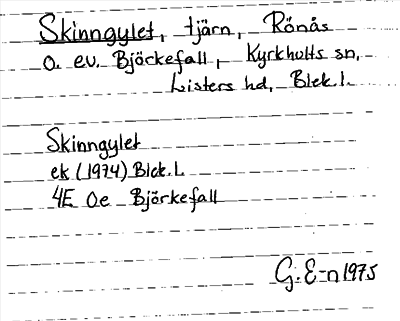 Skinngylet, tjärn, Rönås
o. ev. Björkefall, Kyrkhults sn,
Listers hd, Blek.l.
Skinngylet
ek (1974) Blek.l.
4E 0e Björkefall
G. E-n 1975